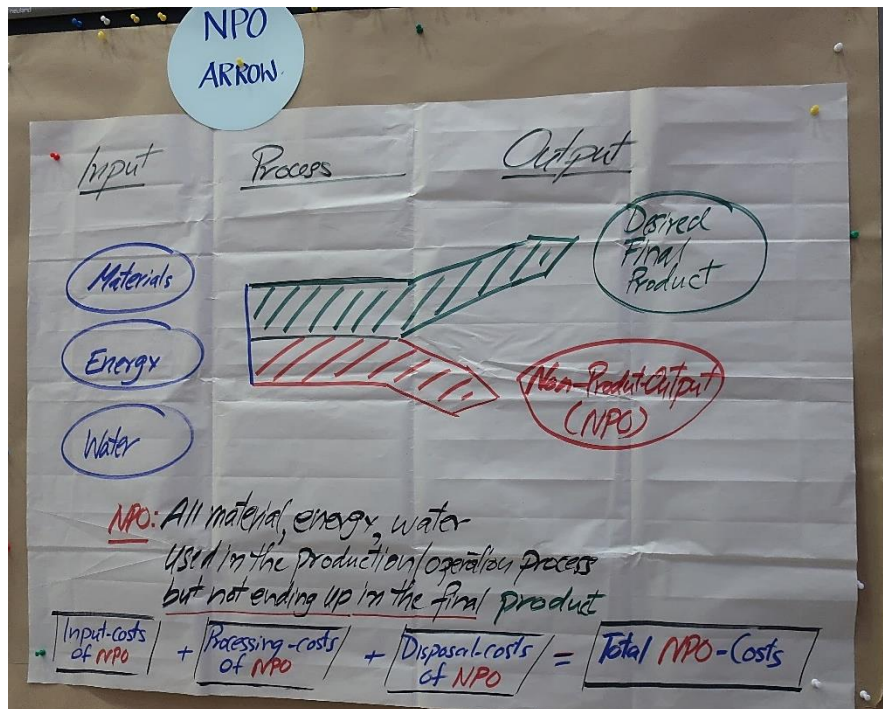 NPO
ARROW
Input
Process
Output
Materials
Energy
Water
Desired
Final
Product
Non-Produt-Output
(NPO)
NPO: All material, energy, water
used in the production/operation process
but not ending up in the final product
Input-costs
of NPO
+
Processing-costs
of NPO
+
Disposal-costs
of NPO
=
Total NPO-Costs